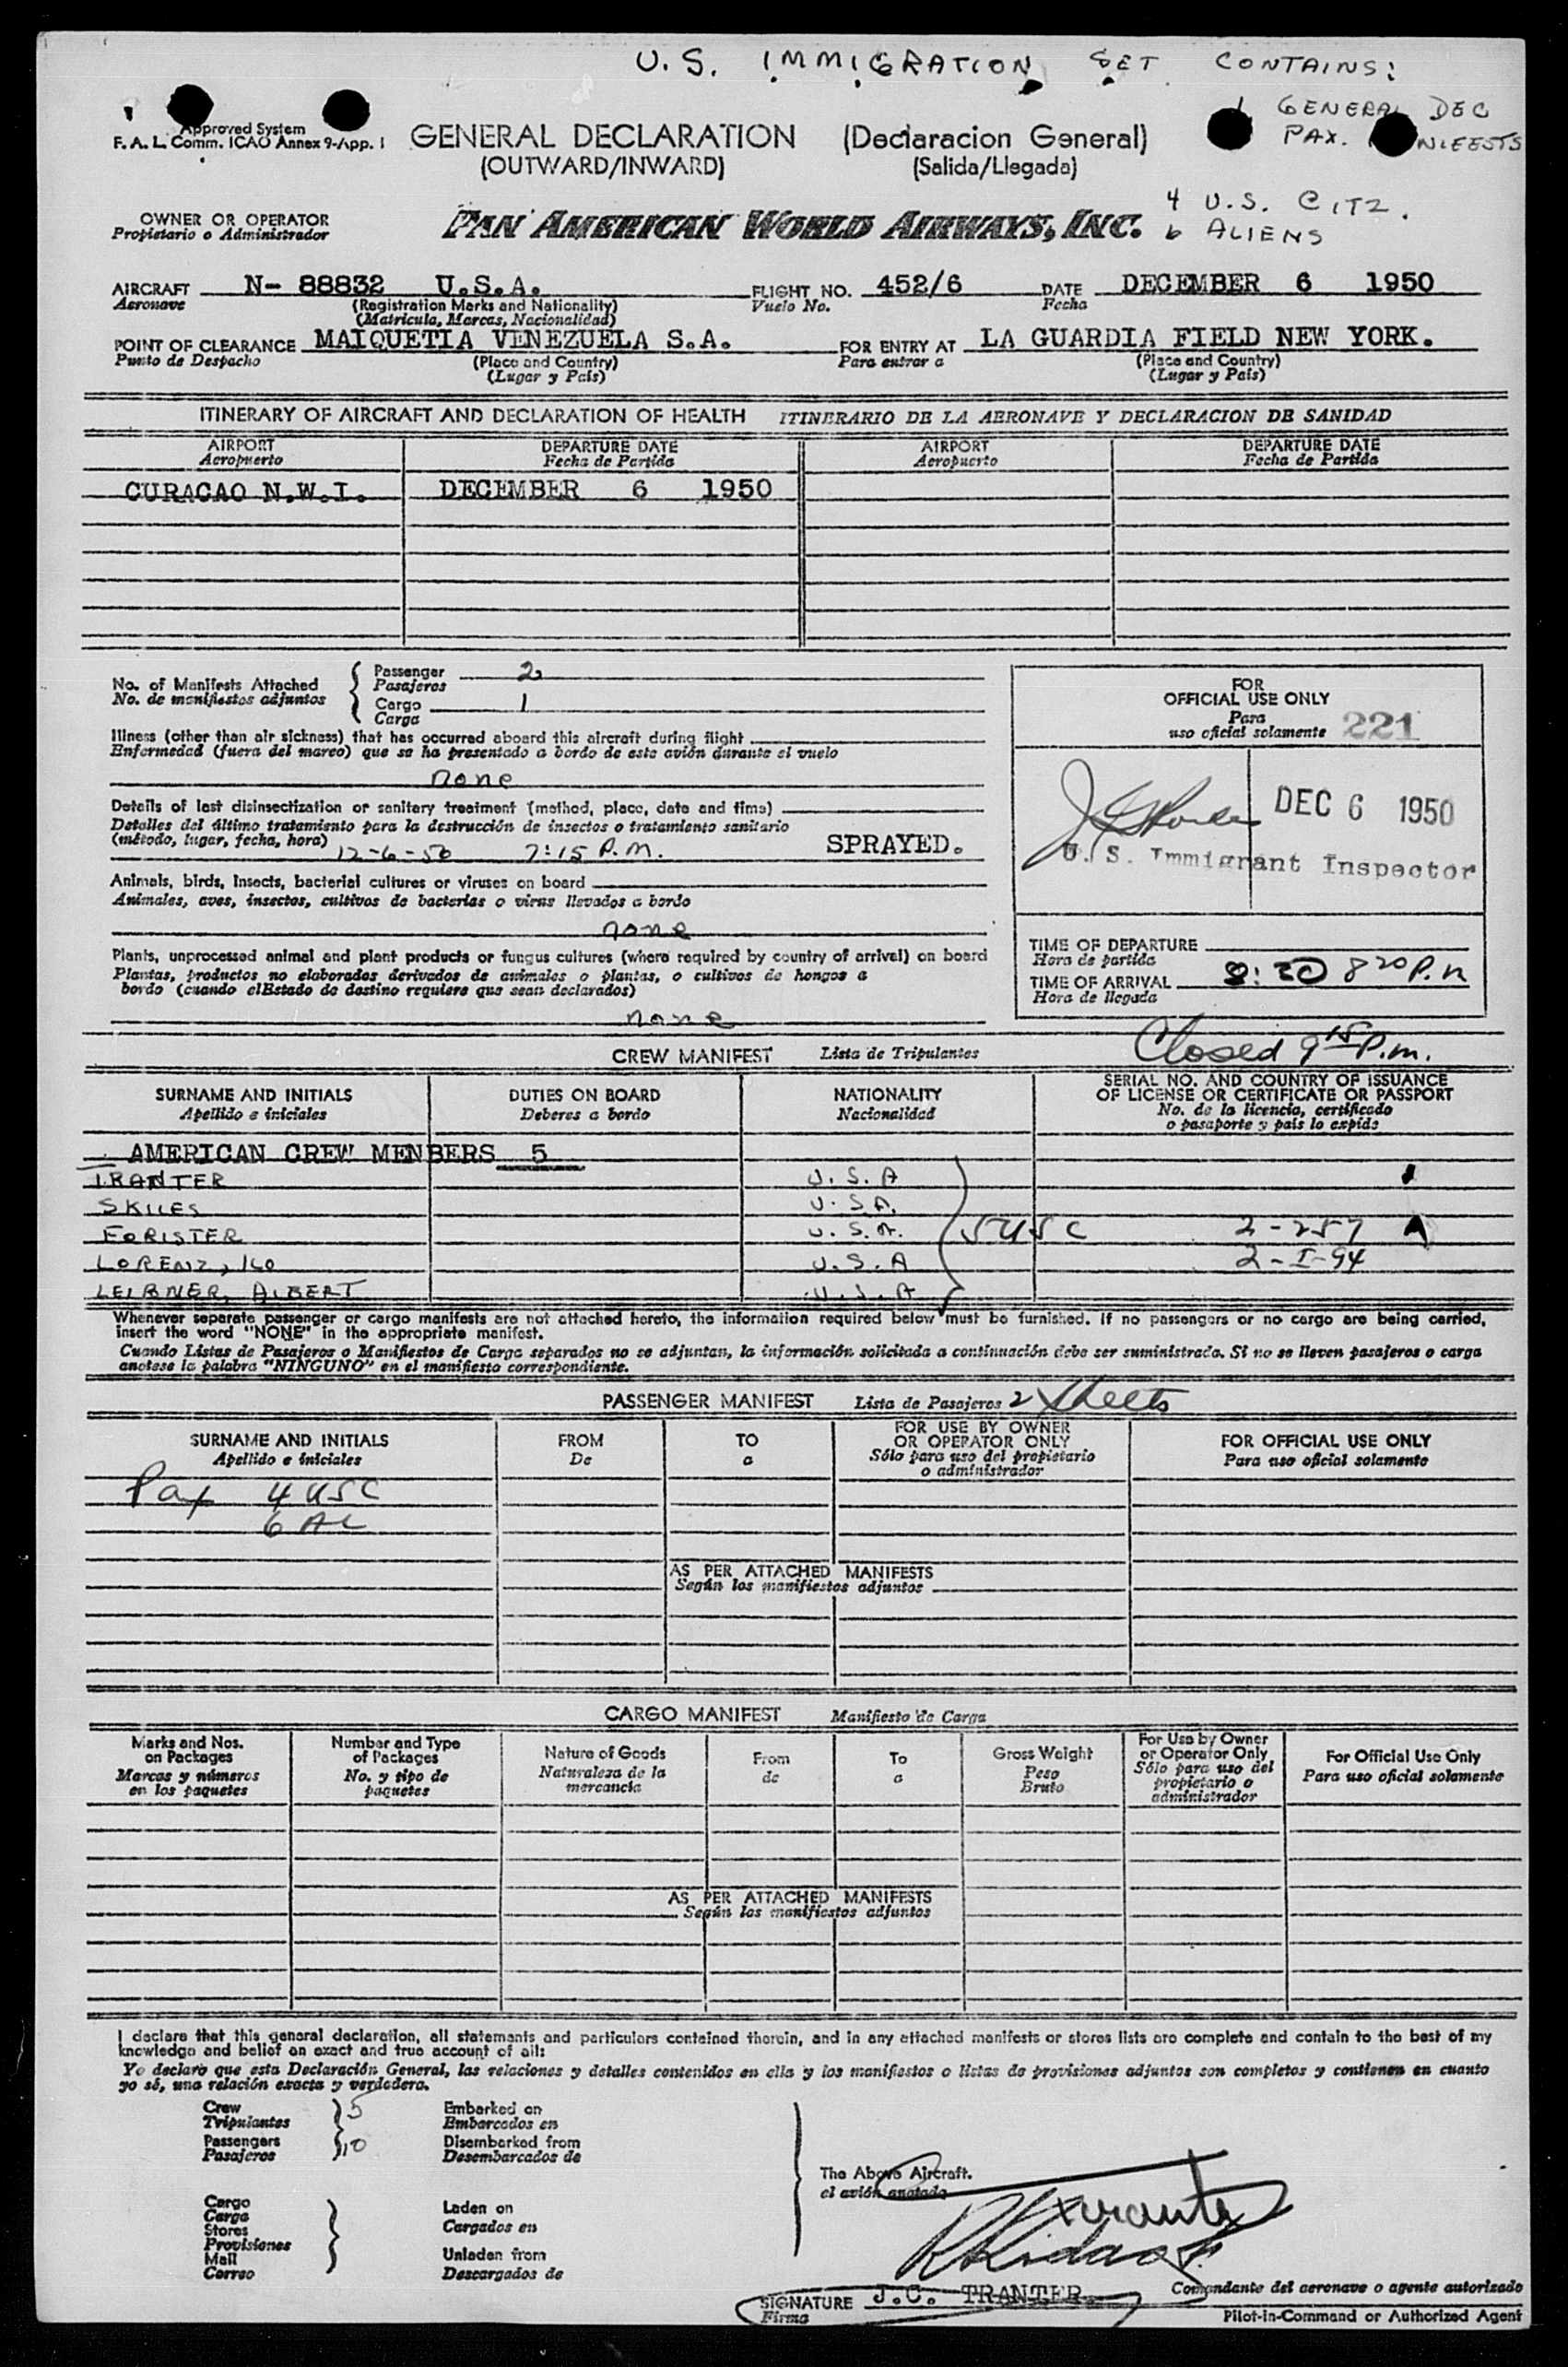 U.S. IMMIGRATION SET CONTAINS:
1 GENERAL DEC
PAX.
4 U.S. CITZ.
6 ALIENS
Approved System
F. A. L. Comm. ICAO Annex 9-App. 1
GENERAL DECLARATION (Declaracion General)
(OUTWARD/INWARD) (Salida/Llegada)
OWNER OR OPERATOR
Propietario o Administrador
PAN AMERICAN WORLD AIRWAYS, INC.
AIRCRAFT N- 88832 U.S.A. FLIGHT NO. 452/6 DATE DECEMBER 6 1950
Aeronave (Registration Marks and Nationality) Vuelo No. Fecha
(Matricula, Marcas, Nacionalidad)
POINT OF CLEARANCE MAIQUETIA VENEZUELA S.A. FOR ENTRY AT LA GUARDIA FIELD NEW YORK.
Punto de Despacho (Place and Country) Para entrar a (Place and Country)
(Lugar y País) (Lugar y País)
ITINERARY OF AIRCRAFT AND DECLARATION OF HEALTH ITINERARIO DE LA AERONAVE Y DECLARACION DE SANIDAD
AIRPORT DEPARTURE DATE AIRPORT DEPARTURE DATE
Aeropuerto Fecha de Partida Aeropuerto Fecha de Partida
CURACAO N.W.I. DECEMBER 6 1950
No. of Manifests Attached Passenger 2
No. de manifiestos adjuntos Pasajeros
Cargo 1
Carga
Illness (other than air sickness) that has occurred aboard this aircraft during flight
Enfermedad (fuera del mareo) que se ha presentado a bordo de este avión durante el vuelo
none
Details of last disinsectization or sanitary treatment (method, place, date and time)
Detalles del último tratamiento para la destrucción de insectos o tratamiento sanitario
(método, lugar, fecha, hora) 12-6-50 7:15 P.M. SPRAYED.
Animals, birds, insects, bacterial cultures or viruses on board
Animales, aves, insectos, cultivos de bacterias o virus llevados a bordo
none
Plants, unprocessed animal and plant products or fungus cultures (where required by country of arrival) on board
Plantas, productos no elaborados derivados de animales o plantas, o cultivos de hongos a
bordo (cuando el Estado de destino requiere que sean declarados)
none
FOR
OFFICIAL USE ONLY
Para
uso oficial solamente 221
DEC 6 1950
U. S. Immigrant Inspector
TIME OF DEPARTURE
Hora de partida
TIME OF ARRIVAL 8:20 8 20 P.M
Hora de llegada
Closed 9 15 P.m.
CREW MANIFEST Lista de Tripulantes
SURNAME AND INITIALS DUTIES ON BOARD NATIONALITY SERIAL NO. AND COUNTRY OF ISSUANCE
OF LICENSE OR CERTIFICATE OR PASSPORT
Apellido e iniciales Deberes a bordo Nacionalidad No. de la licencia, certificado
o pasaporte y país lo expide
AMERICAN CREW MENBERS 5
TRANTER U.S.A
SKILES U.S.A.
FORISTER U.S.A. 5 USC 2-257
LORENZ, 160 U.S.A 2-I-94
LEIBNER, ALBERT U.S.A
Whenever separate passenger or cargo manifests are not attached hereto, the information required below must be furnished. If no passengers or no cargo are being carried,
insert the word "NONE" in the appropriate manifest.
Cuando Listas de Pasajeros o Manifiestos de Carga separados no se adjuntan, la información solicitada a continuación debe ser suministrada. Si no se lleven pasajeros o carga
anotese la palabra "NINGUNO" en el manifiesto correspondiente.
PASSENGER MANIFEST Lista de Pasajeros 2 sheets
SURNAME AND INITIALS FROM TO FOR USE BY OWNER FOR OFFICIAL USE ONLY
Apellido e iniciales De a OR OPERATOR ONLY Para uso oficial solamente
Sólo para uso del propietario
o administrador
Pax 4 USC
6 AL
AS PER ATTACHED MANIFESTS
Según los manifiestos adjuntos
CARGO MANIFEST Manifiesto de Carga
Marks and Nos. Number and Type Nature of Goods From To Gross Weight For Use by Owner For Official Use Only
on Packages of Packages Naturaleza de la de a Peso or Operator Only Para uso oficial solamente
Marcas y números No. y tipo de mercancía Bruto Sólo para uso del
en los paquetes paquetes propietario o
administrador
AS PER ATTACHED MANIFESTS
Según los manifiestos adjuntos
I declare that this general declaration, all statements and particulars contained therein, and in any attached manifests or stores lists are complete and contain to the best of my
knowledge and belief an exact and true account of all:
Yo declaro que esta Declaración General, las relaciones y detalles contenidos en ella y los manifiestos o listas de provisiones adjuntos son completos y contienen en cuanto
yo sé, una relación exacta y verdadera.
Crew 5 Embarked on
Tripulantes Embarcados en
Passengers 10 Disembarked from
Pasajeros Desembarcados de
The Above Aircraft.
el avión anotado
Cargo Laden on
Carga Cargados en
Stores
Provisiones
Mail Unladen from
Correo Descargados de
Tranter
SIGNATURE J.C. TRANTER
Firma
Comandante del aeronave o agente autorizado
Pilot-in-Command or Authorized Agent